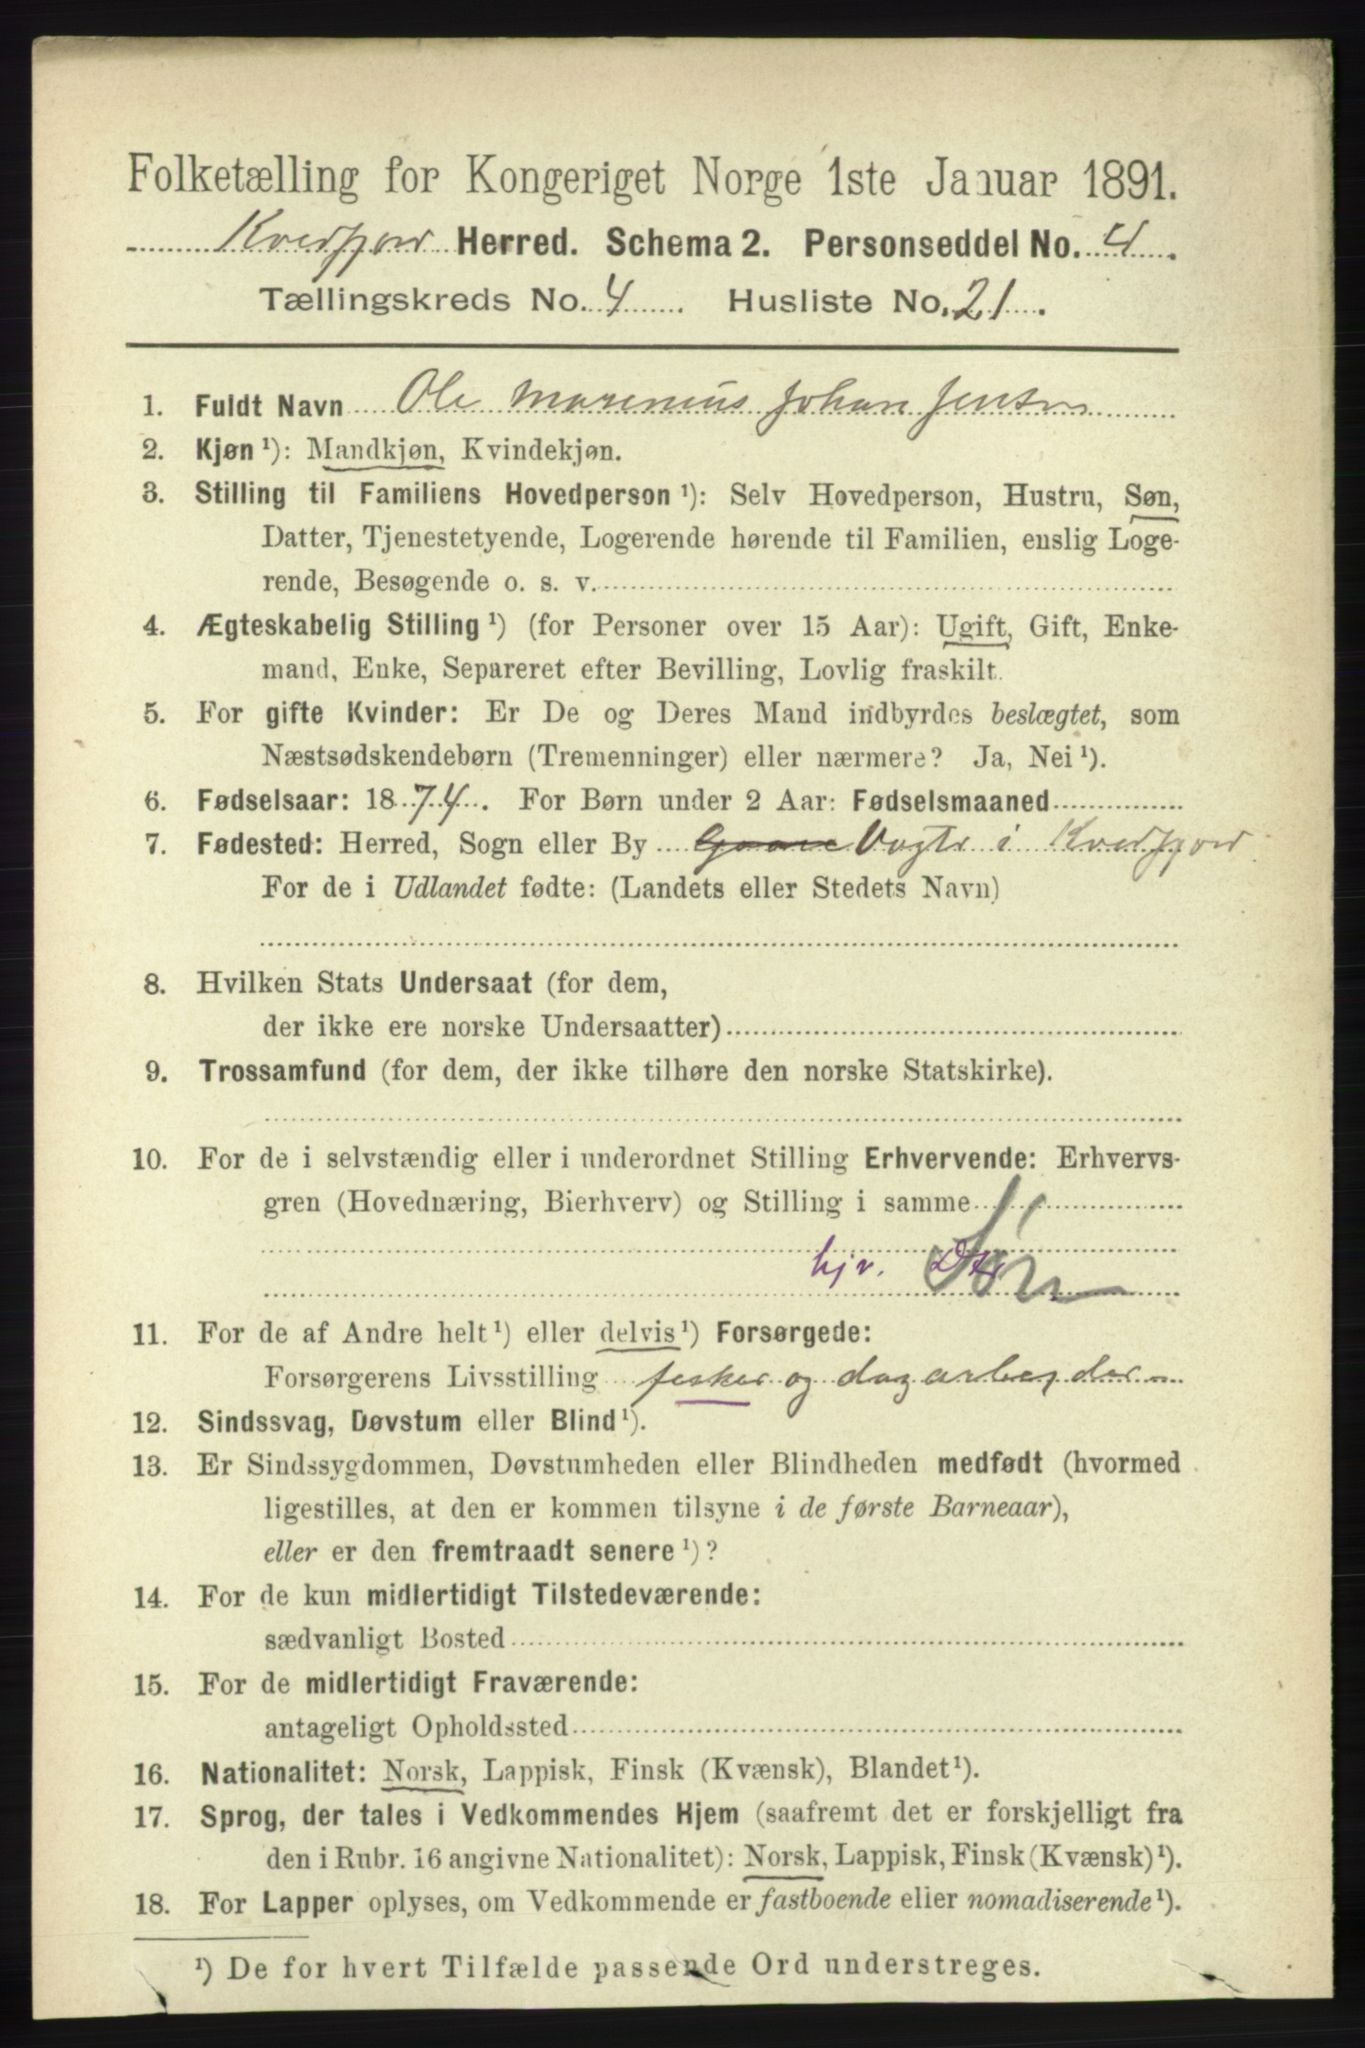 Folketælling for Kongeriget Norge 1ste Januar 1891.
Kvedfjord Herred. Schema 2. Personseddel No. 4.
Tællingskreds No. 4. Husliste No. 21.
1. Fuldt Navn Ole Marenius Johan Jensen
2. Kjøn ¹): Mandkjøn, Kvindekjøn.
3. Stilling til Familiens Hovedperson ¹): Selv Hovedperson, Hustru, Søn,
Datter, Tjenestetyende, Logerende hørende til Familien, enslig Loge-
rende, Besøgende o. s. v.
4. Ægteskabelig Stilling ¹) (for Personer over 15 Aar): Ugift, Gift, Enke-
mand, Enke, Separeret efter Bevilling, Lovlig fraskilt.
5. For gifte Kvinder: Er De og Deres Mand indbyrdes beslægtet, som
Næstsødskendebørn (Tremenninger) eller nærmere? Ja, Nei ¹).
6. Fødselsaar: 1874. For Børn under 2 Aar: Fødselsmaaned
7. Fødested: Herred, Sogn eller By i Kvedfjord
For de i Udlandet fødte: (Landets eller Stedets Navn)
8. Hvilken Stats Undersaat (for dem,
der ikke ere norske Undersaatter)
9. Trossamfund (for dem, der ikke tilhøre den norske Statskirke).
10. For de i selvstændig eller i underordnet Stilling Erhvervende: Erhvervs-
gren (Hovednæring, Bierhverv) og Stilling i samme
hjv. Søn
11. For de af Andre helt ¹) eller delvis ¹) Forsørgede:
Forsørgerens Livsstilling fisker og dagarbejder
12. Sindssvag, Døvstum eller Blind ¹).
13. Er Sindssygdommen, Døvstumheden eller Blindheden medfødt (hvormed
ligestilles, at den er kommen tilsyne i de første Barneaar),
eller er den fremtraadt senere ¹)?
14. For de kun midlertidigt Tilstedeværende:
sædvanligt Bosted
15. For de midlertidigt Fraværende:
antageligt Opholdssted
16. Nationalitet: Norsk, Lappisk, Finsk (Kvænsk), Blandet ¹).
17. Sprog, der tales i Vedkommendes Hjem (saafremt det er forskjelligt fra
den i Rubr. 16 angivne Nationalitet): Norsk, Lappisk, Finsk (Kvænsk) ¹).
18. For Lapper oplyses, om Vedkommende er fastboende eller nomadiserende ¹).
¹) De for hvert Tilfælde passende Ord understreges.